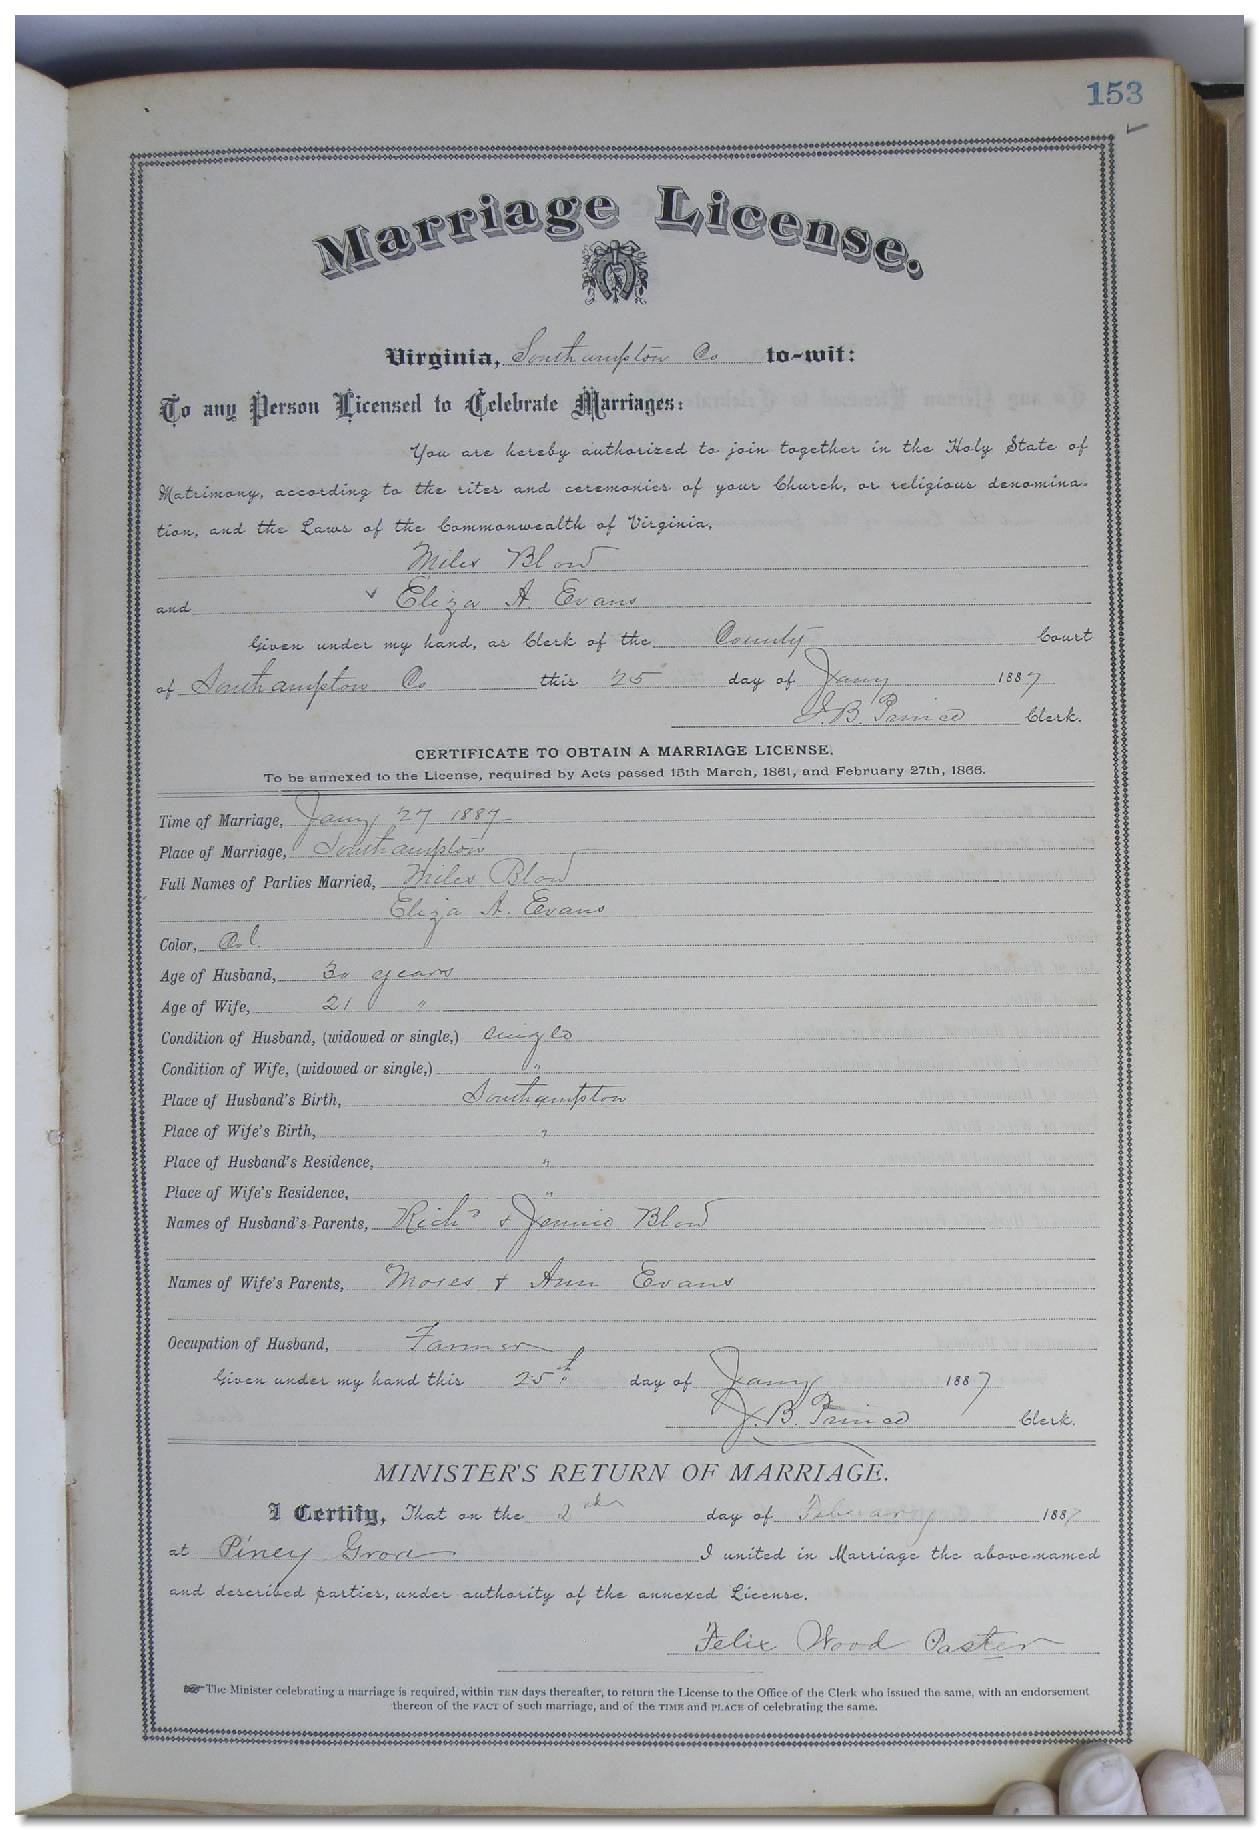 153
Marriage License.
Virginia, Southampton Co to-wit:
To any Person Licensed to Celebrate Marriages:
You are hereby authorized to join together in the Holy State of
Matrimony, according to the rites and ceremonies of your Church, or religious denomina-
tion, and the Laws of the Commonwealth of Virginia,
Miles Blow
and Eliza A Evans
Given under my hand, as Clerk of the County Court
of Southampton Co this 25 day of Jany 1887
J. B. Prince Clerk.
CERTIFICATE TO OBTAIN A MARRIAGE LICENSE.
To be annexed to the License, required by Acts passed 15th March, 1861, and February 27th, 1866.
Time of Marriage, Jany 27 1887
Place of Marriage, Southampton
Full Names of Parties Married, Miles Blow
Eliza A. Evans
Color, Col.
Age of Husband, 30 years
Age of Wife, 21 "
Condition of Husband, (widowed or single,) single
Condition of Wife, (widowed or single,) "
Place of Husband's Birth, Southampton
Place of Wife's Birth, "
Place of Husband's Residence, "
Place of Wife's Residence, "
Names of Husband's Parents, Richd & Jennie Blow
Names of Wife's Parents, Moses & Ann Evans
Occupation of Husband, Farmer
Given under my hand this 25th day of Jany 1887
J. B. Prince Clerk.
MINISTER'S RETURN OF MARRIAGE.
I Certify, That on the day of February 1887
at Piney Grove I united in Marriage the above-named
and described parties, under authority of the annexed License.
Felix Wood Paster
☞ The Minister celebrating a marriage is required, within TEN days thereafter, to return the License to the Office of the Clerk who issued the same, with an endorsement
thereon of the FACT of such marriage, and of the TIME and PLACE of celebrating the same.